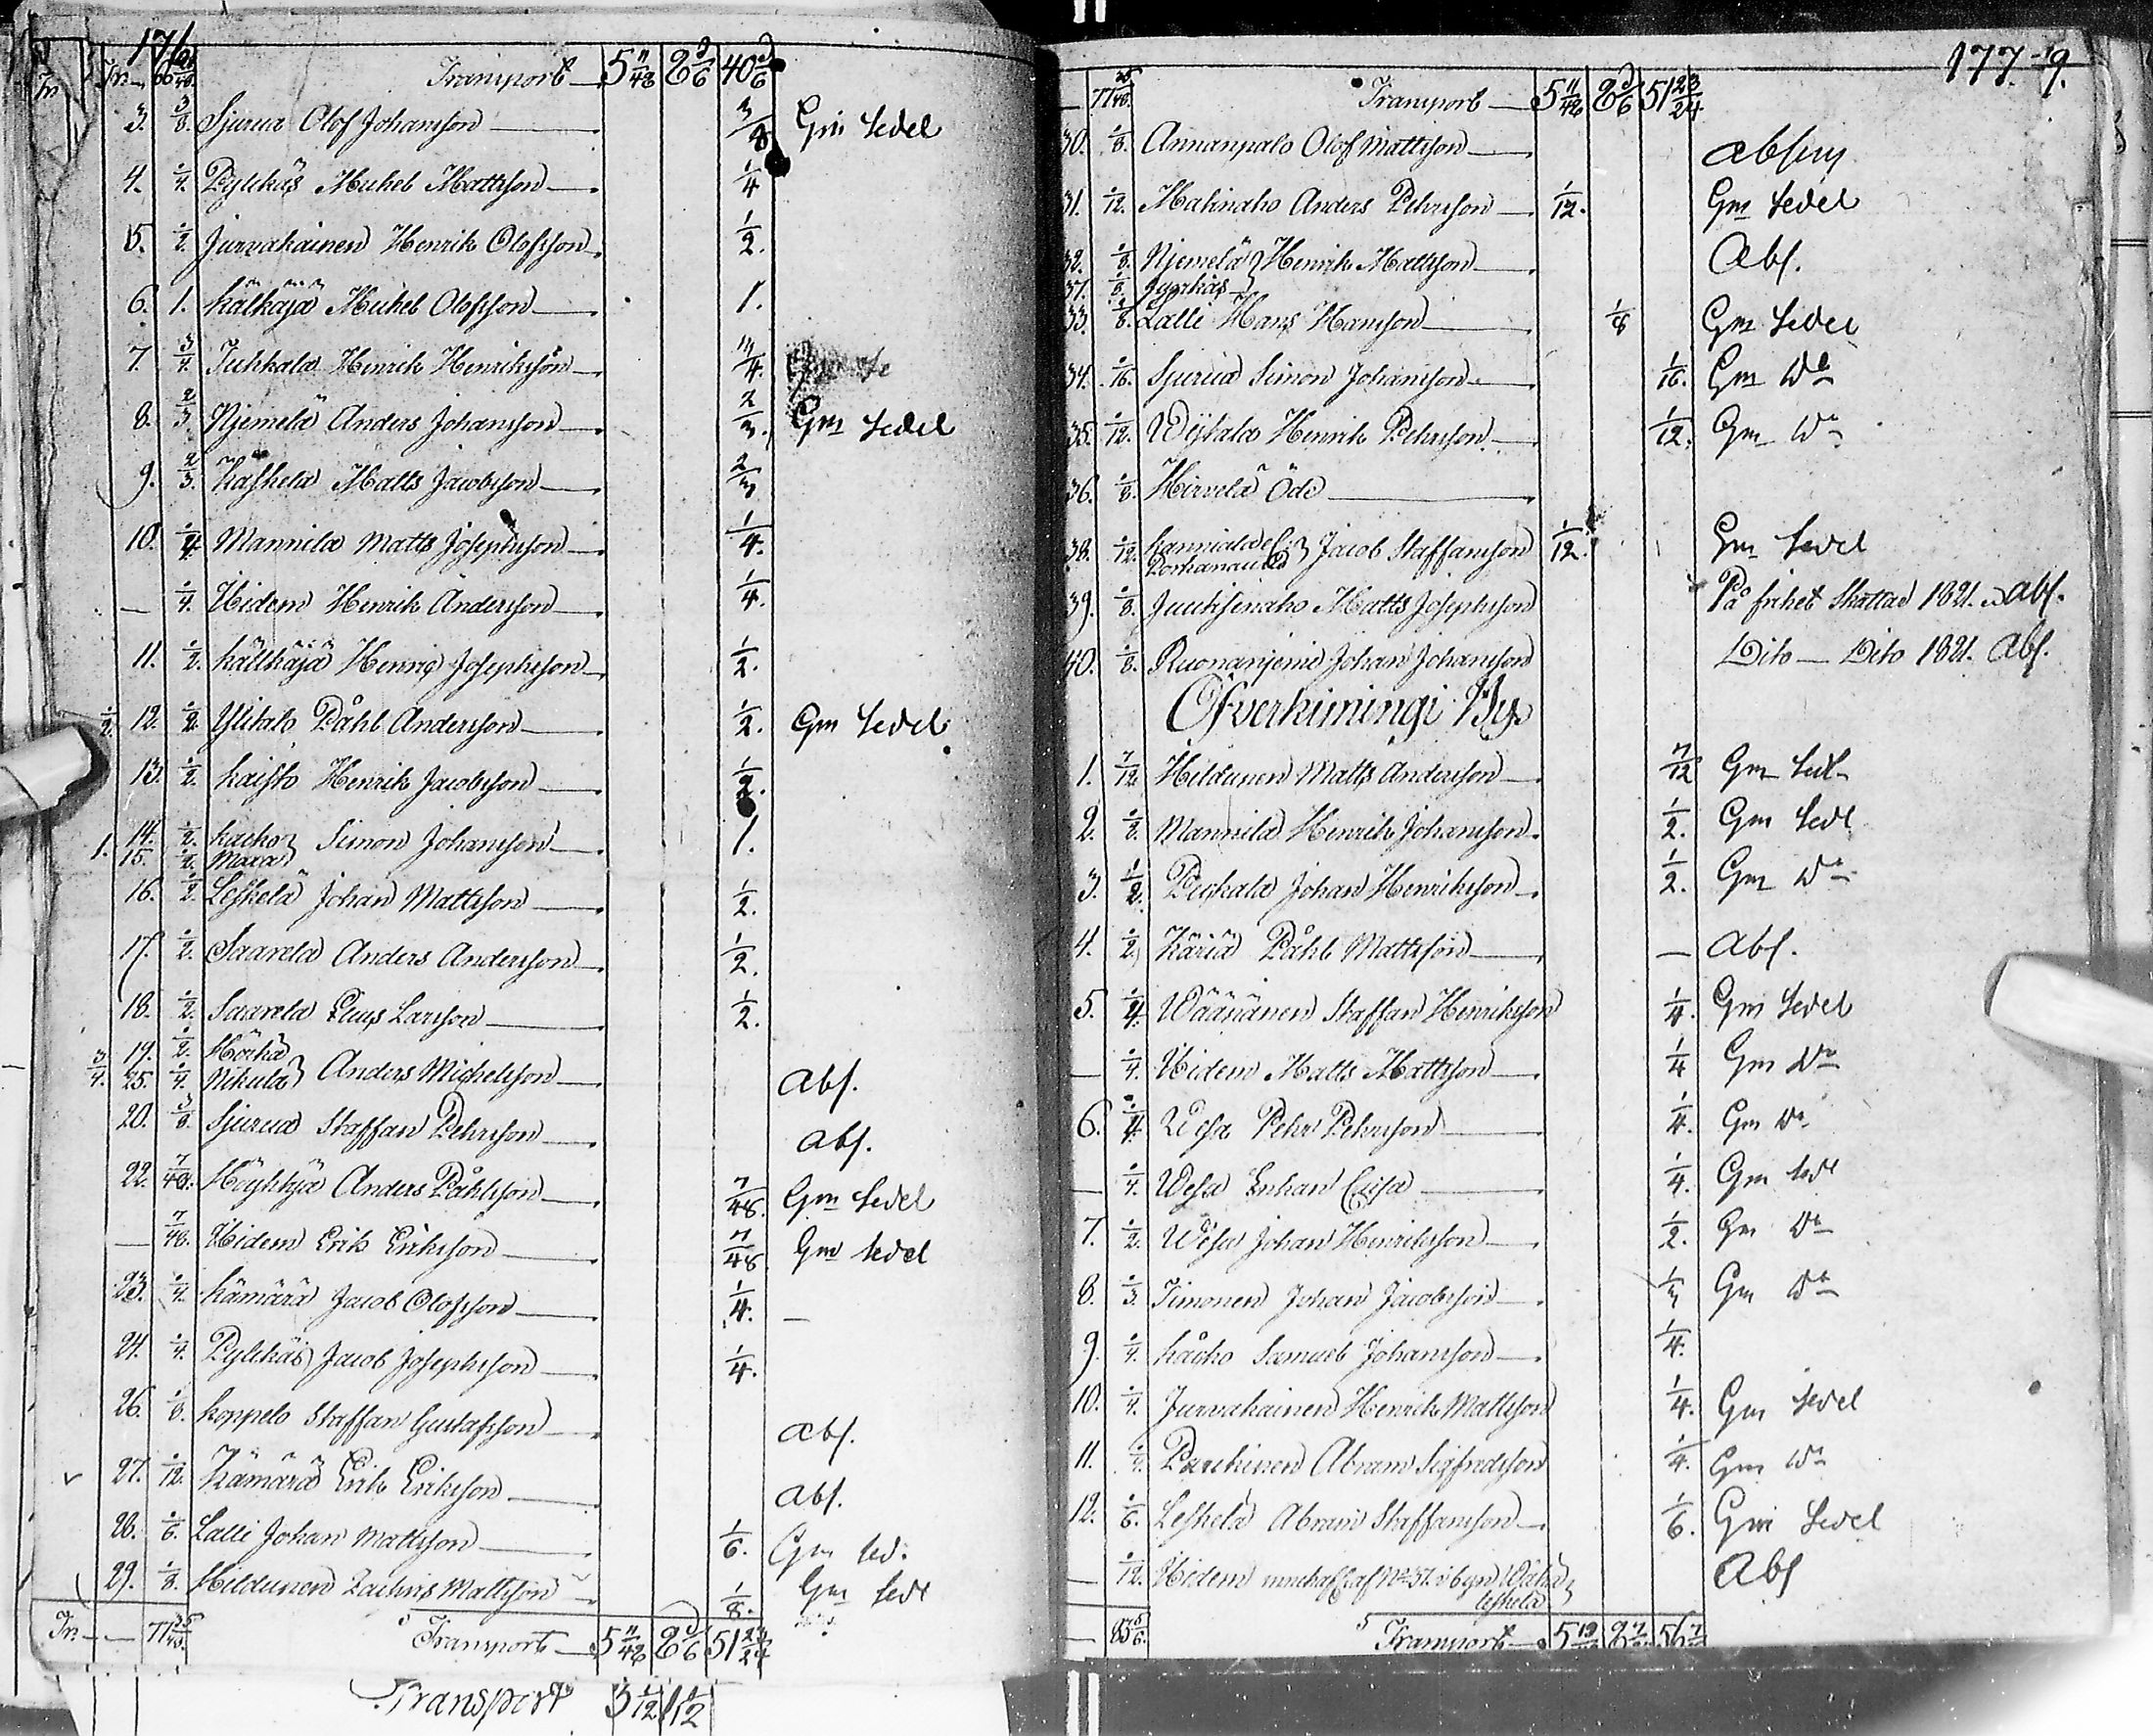 176
Transport 5 11/48 2 5/6 40 5/6
3. 3/8 Sjurua Olof Johansson 3/8 Gm Sedel
4. 1/4. Pylckäs Michel Mattsson 1/4
5. 1/2. Jurvakainen Henrik Olofsson 1/2.
6. 1. Kälkäjä Michel Olofsson 1.
7. 3/4. Juhkala Henrik Henriksson 3/4.
8. 2/3 Njemelä Anders Johansson 2/3. Gm Sedel
9. 2/3. Käskelä Matts Jacobsson 2/3
10. 1/4 Mannila Matts Josephsson 1/4.
— 1/4. Ibidem Henrik Andersson 1/4.
11. 1/2. Kälkäjä Henric Josephsson 1/2.
1/2. 12. 1/2. Ylitalo Påhl Andersson 1/2. Gm Sedel
13. 1/2. Kaisto Henrik Jacobsson 1/2.
1. 14. 1/2. Kacko Simon Johansson 1.
15. 1/2. Maxa
16. 1/2. Leskelä Johan Mattsson 1/2.
17. 1/2. Saarela Anders Andersson 1/2.
18. 1/2. Saarela Clays Larsson 1/2.
19. 1/2. Hörkä
3/4. 25. 1/4. Nikula Anders Michelsson Abs.
20. 3/8. Sjurua Staffan Pehrsson Abs.
22. 7/48. Höykkyä Anders Påhlsson 7/48. Gm Sedel
— 7/48. Ibidem Erik Eriksson 7/48 Gm Sedel
23. 1/4. Kämärä Jacob Olofsson 1/4. —
24. 1/4. Pylckäs Jacob Josephsson 1/4.
26. 1/8. Koppelo Staffan Gustafsson Abs.
27. 1/12. Kämärä Erik Eriksson Abs.
28. 1/6. Lalli Johan Mattsson 1/6. Gm Sed.
29. 1/8. Hildunen Zachris Mattsson 1/8. Gm Sedl
Tr. — 71 35/48. Transport 5 11/48 2 5/6 51 23/24
Transport 5 1/12 1 1/12
177-9.
71 35/48. Transport 5 11/48 2 5/6 51 23/24
30. 1/8. Annanpalo Olof Mattsson
31. 1/12. Mahinaho Anders Pehrsson 1/12. Gm Sedel
32. 1/8. Njemelä Henrik Mattsson Abs.
37. 1/8. Jyrkäs
33. 1/8. Lalli Hans Hansson 1/8 Gm Sedel
34. 1/16. Sjurua Simon Johansson 1/16. Gm Do
35. 1/12. Wijtala Henrik Pehrsson 1/12. Gm Do
36. 1/8. Hirvelä Öde
38. 1/12. Jacob Staffansson 1/12. Gm Sedel
39. 1/8. Juuksinaho Matts Josephsson På frihet Skattas 1821. Abs.
40. 1/8. Ruonanjemi Johan Johansson Dito — Dito 1821. Abs.
Öfverkimingi By
1. 7/12 Hildunen Matts Andersson 7/12 Gm Sedl
2. 1/2. Mannila Henrik Johansson 1/2. Gm Sedl
3. 1/2. Peckala Johan Henriksson 1/2. Gm Do
4. 1/2. Käriä Påhl Mattsson — Abs.
5. 1/4. Wäänänen Staffan Henriksson 1/4. Gm Sedel
— 1/4. Ibidem Matts Mattsson 1/4 Gm Do
6. 1/4. Wesa Pehr Pehrsson 1/4. Gm Do
— 1/4. Wesa Enkan Caisa 1/4. Gm Sedl
7. 1/2. Wesa Johan Henriksson 1/2. Gm Do
8. 1/3. Timonen Johan Jacobsson 1/3 Gm Do
9. 1/4. Kåcko Samuel Johansson 1/4.
10. 1/4. Jurvakainen Henrik Mattsson 1/4. Gm Sedel
11. 1/4. Parckinen Abram Sigfredsson 1/4. Gm Do
12. 1/6. Leskelä Abram Staffansson 1/6. Gm Sedel
— 1/12. Ibidem Abs
Leskelä
Transport